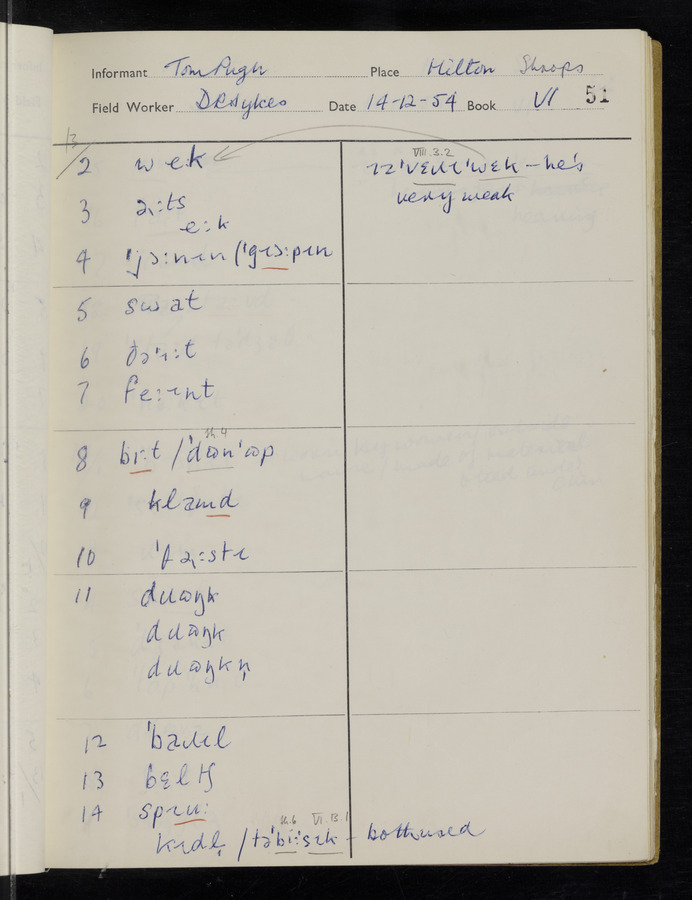 Informant Tom Pugh Place Hilton Shrops
Field Worker D R Sykes Date 14-12-54 Book VI 51
13
2 wɛk
VIII.3.2
ɪz ˈvɛɹɪ ˈwɛk – he's
very weak
3 aːts
eːk
4 ˈjɔːnɪn / ˈgɪɔːpɪn
5 swat
6
7 feːɪnt
sh 4
8 brːt / ˈdʊnˈʊp
9 klamd
10 ˈθaːstɪ
11 dɹʊŋk
dɹʊŋk
dɹʊŋkn̩
12 ˈbaɹɪl
13 bɛltʃ
14 spɪuː
sh.6 VI.13.1
kɪdl̩ / tə ˈbiːˈsɪk – both used